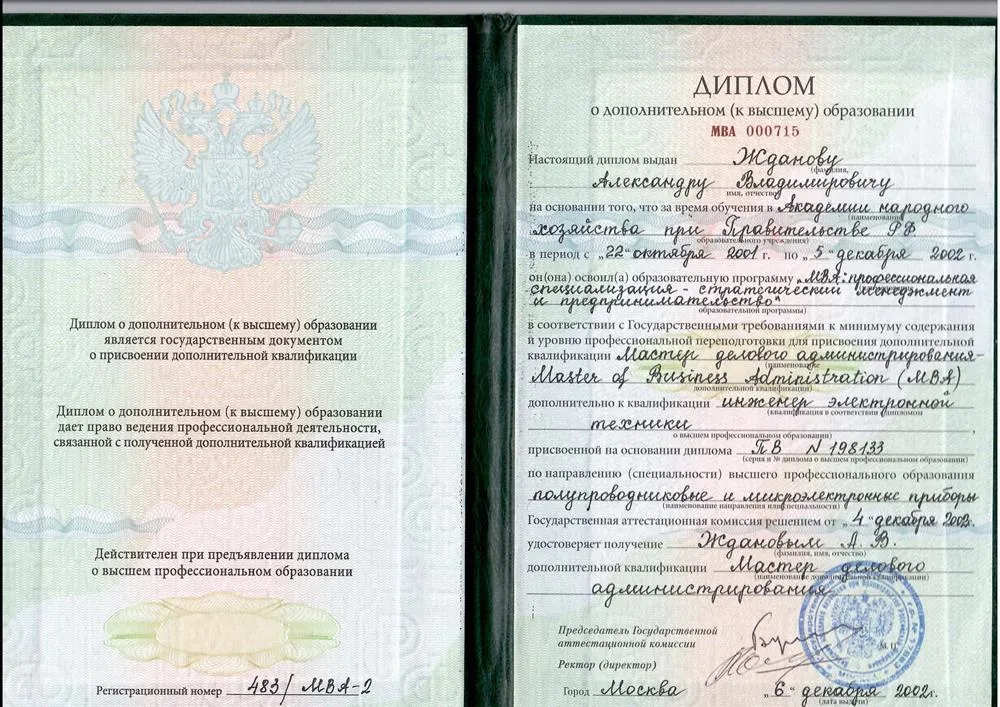 Диплом о дополнительном (к высшему) образовании
является государственным документом
о присвоении дополнительной квалификации
Диплом о дополнительном (к высшему) образовании
дает право ведения профессиональной деятельности,
связанной с полученной дополнительной квалификацией
Действителен при предъявлении диплома
о высшем профессиональном образовании
Регистрационный номер 483/МВА-2
ДИПЛОМ
о дополнительном (к высшему) образовании
МВА 000715
Настоящий диплом выдан Жданову
(фамилия,
Александру Владимировичу
имя, отчество)
на основании того, что за время обучения в Академии народного
(наименование
хозяйства при Правительстве РФ
образовательного учреждения)
в период с „22“ октября 2001 г. по „5“ декабря 2002 г.
он(она) освоил(а) образовательную программу „МВА: профессиональная
специализация - стратегический менеджмент
и предпринимательство“
образовательной программы)
в соответствии с Государственными требованиями к минимуму содержания
и уровню профессиональной переподготовки для присвоения дополнительной
квалификации Мастер делового администрирования-
(наименование
Master of Business Administration (MBA)
дополнительной квалификации)
дополнительно к квалификации инженер электронной
(квалификация в соответствии с дипломом
техники
о высшем профессиональном образовании)
присвоенной на основании диплома ПВ N 198133
(серия и № диплома о высшем профессиональном образовании)
по направлению (специальности) высшего профессионального образования
полупроводниковые и микроэлектронные приборы
(наименование направления или специальности)
Государственная аттестационная комиссия решением от „4“ декабря 2002г.
удостоверяет получение Ждановым А. В.
(фамилия, имя, отчество)
дополнительной квалификации Мастер делового
(наименование дополнительной квалификации)
администрирования
Председатель Государственной
аттестационной комиссии
М. П.
Ректор (директор)
Город Москва „6“ декабря 2002г.
(дата выдачи)